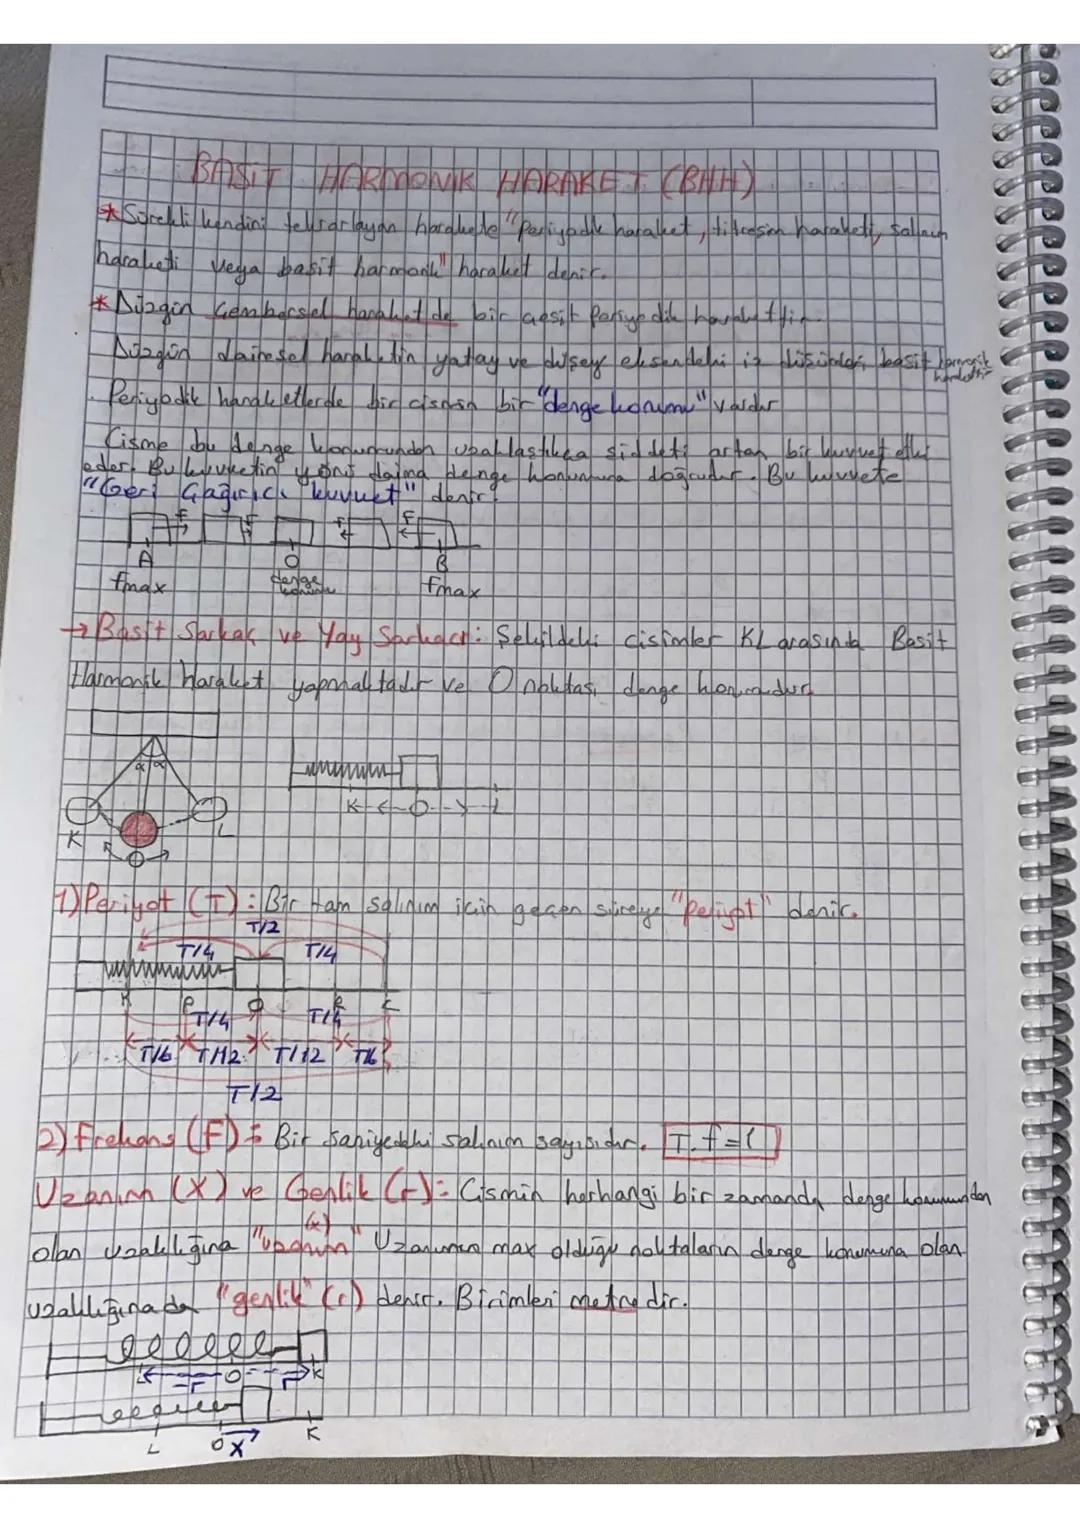 BASİT HARMONİK HARAKET (BHH)
*Sürekli kendini tekrarlayan harakete "Periyodik haraket, titresim haraketi, salınım
haraketi veya basit harmonik" haraket denir.
*Düzgün Çembersel haraket de bir çeşit Periyodik harakettir.
Düzgün dairesel haraketin yatay ve düşey eksendeki iz düşümleri, basit harmonik
harakettir
Periyodik haraketlerde bir cismin bir "denge konumu" vardır
Cisme bu denge konumundan uzaklaştıkça şiddeti artan bir kuvvet etki
eder. Bu kuvvetin yönü daima denge konumuna doğrudur. Bu kuvvete
"Geri Çağırıcı kuvvet" denir.
F F F F
A O B
fmax denge konumu fmax
→Basit Sarkaç ve Yay Sarkacı: Şekildeki cisimler KL arasında Basit
Harmonik Haraket yapmaktadır ve O noktası denge konumudur.
α α
K O L
K O L
1)Periyot (T): Bir tam salınım için geçen süreye "periyot" denir.
T/2
T/4 T/4
K P O R L
T/4 T/4
T/6 T/12 T/12 T/6
T/2
2)Frekans (F): Bir saniyedeki salınım sayısıdır. T.f=1
Uzanım (X) ve Genlik (r): Cismin herhangi bir zamanda denge konumundan
(x)
olan uzaklığına "uzanım" Uzanımın max olduğu noktaların denge konumuna olan
uzaklığına da "genlik" (r) denir. Birimleri metredir.
-r O r K
L O X K